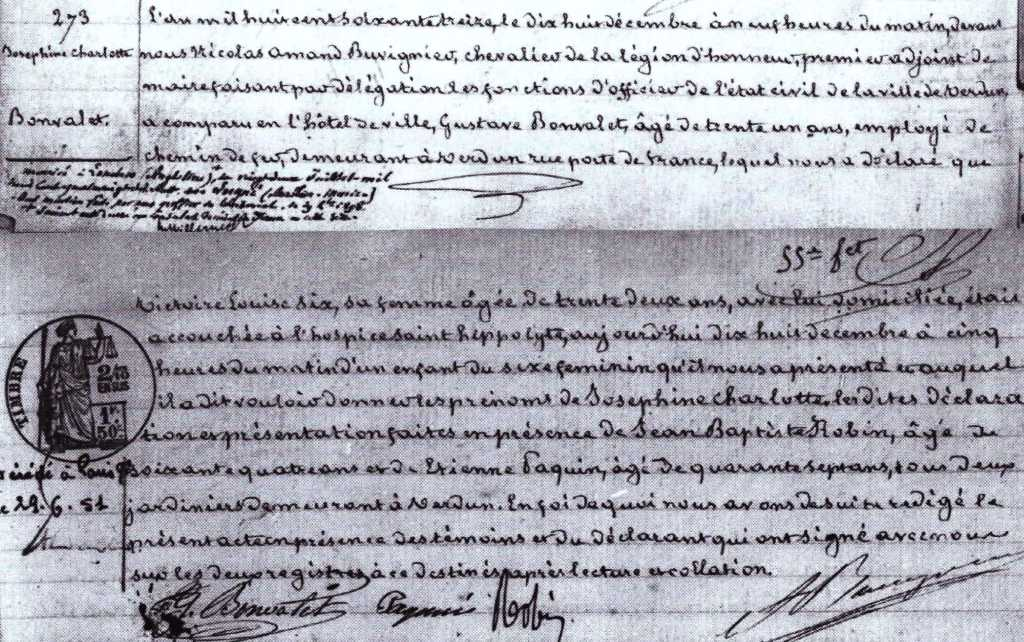 273
Josephine Charlotte
Bonvalet.
L'an mil huit cent soixante treize, le dix huit décembre à neuf heures du matin, devant
nous Nicolas Amand Buvignier, chevalier de la légion d'honneur, premier adjoint de
maire faisant par délégation les fonctions d'officier de l'état civil de la ville de Verdun,
a comparu en l'hôtel de ville, Gustave Bonvalet, âgé de trente un ans, employé de
chemin de fer, demeurant à Verdun rue porte de France, lequel nous a déclaré que
Juillet mil
55me fet
Victoire Louise Six, sa femme âgée de trente deux ans, avec lui domiciliée, était
accouchée à l'hospice saint hippolyte, aujourd'hui dix huit décembre à cinq
heures du matin d'un enfant du sixe feminin qu'il nous a présenté et auquel
il a dit vouloir donner les prénoms de Josephine Charlotte, les dites déclara
tion et présentation faites en présence de Jean Baptiste Robin, âgé de
soixante quatre ans et de Etienne Paquin, âgé de quarante sept ans, tous deux
jardiniers demeurant à Verdun. En foi de quoi nous avons de suite redigé le
présent acte en présence des témoins et du déclarant qui ont signé avec nous
sur les deux registres à ce destinés après lecture et collation.
TIMBRE
1F
50c
décédée à Paris
le 29.6.51
G. Bonvalet Paquin Robin